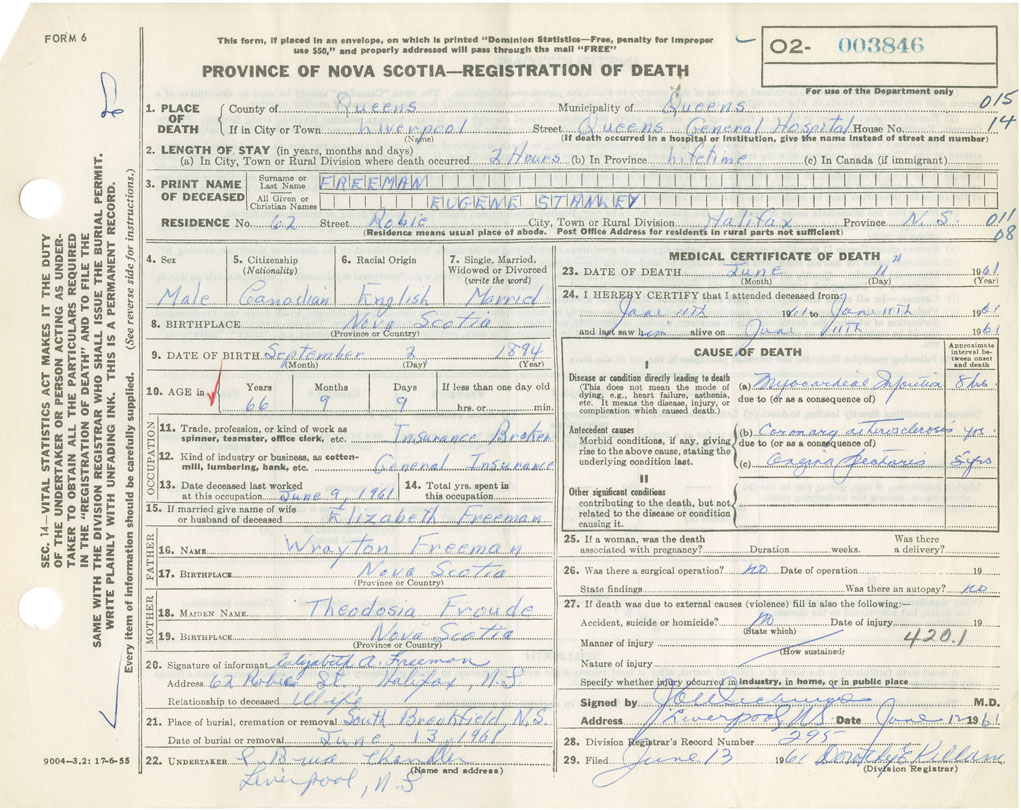 FORM 6
This form, if placed in an envelope, on which is printed "Dominion Statistics—Free, penalty for improper
use $50," and properly addressed will pass through the mail "FREE"
PROVINCE OF NOVA SCOTIA—REGISTRATION OF DEATH
O2- 003846
For use of the Department only
015
14
1. PLACE OF DEATH County of Queens Municipality of Queens
If in City or Town Liverpool Street Queens General Hospital House No.
(Name) (If death occurred in a hospital or institution, give the name instead of street and number)
2. LENGTH OF STAY (in years, months and days)
(a) In City, Town or Rural Division where death occurred 2 Hours (b) In Province lifetime (c) In Canada (if immigrant)
3. PRINT NAME OF DECEASED Surname or Last Name FREEMAN
All Given or Christian Names EUGENE STANLEY
RESIDENCE No. 62 Street Robie City, Town or Rural Division Halifax Province N.S.
(Residence means usual place of abode. Post Office Address for residents in rural parts not sufficient)
011
08
4. Sex Male
5. Citizenship (Nationality) Canadian
6. Racial Origin English
7. Single, Married, Widowed or Divorced (write the word) Married
8. BIRTHPLACE Nova Scotia
(Province or Country)
9. DATE OF BIRTH September 2 1894
(Month) (Day) (Year)
10. AGE in Years 66 Months 9 Days 9 If less than one day old hrs. or min.
OCCUPATION
11. Trade, profession, or kind of work as spinner, teamster, office clerk, etc. Insurance Broker
12. Kind of industry or business, as cotton-mill, lumbering, bank, etc. General Insurance
13. Date deceased last worked at this occupation June 9, 1961
14. Total yrs. spent in this occupation
15. If married give name of wife or husband of deceased Elizabeth Freeman
FATHER
16. NAME Wrayton Freeman
17. BIRTHPLACE Nova Scotia
(Province or Country)
MOTHER
18. MAIDEN NAME Theodosia Froude
19. BIRTHPLACE Nova Scotia
(Province or Country)
20. Signature of informant Elizabeth A. Freeman
Address 62 Robie St. Halifax, N.S.
Relationship to deceased Wife
21. Place of burial, cremation or removal South Brookfield, N.S.
Date of burial or removal June 13, 1961
22. UNDERTAKER Chandler
(Name and address)
Liverpool, N.S
9004-3,2: 17-6-55
MEDICAL CERTIFICATE OF DEATH
23. DATE OF DEATH June 11 1961
(Month) (Day) (Year)
24. I HEREBY CERTIFY that I attended deceased from
June 11TH 19 to June 11TH 1961
and last saw him alive on June 11TH 1961
CAUSE OF DEATH
Approximate interval between onset and death
I
Disease or condition directly leading to death
(This does not mean the mode of dying, e.g., heart failure, asthenia, etc. It means the disease, injury, or complication which caused death.)
(a) Myocardial 8 hrs
due to (or as a consequence of)
Antecedent causes
Morbid conditions, if say, giving rise to the above cause, stating the underlying condition last.
(b) Coronary arterosclerosis yrs
due to (or as a consequence of)
(c) Angina Pectoris 5 yrs
II
Other significant conditions
contributing to the death, but not related to the disease or condition causing it.
25. If a woman, was the death associated with pregnancy? Duration weeks. Was there a delivery?
26. Was there a surgical operation? NO Date of operation 19
State findings Was there an autopsy? NO
27. If death was due to external causes (violence) fill in also the following:—
Accident, suicide or homicide? NO Date of injury 19
(State which)
Manner of injury 420.1
(How sustained)
Nature of injury
Specify whether injury occurred in industry, in home, or in public place
Signed by M.D.
Address Liverpool N.S. Date June 12 1961
28. Division Registrar's Record Number 295
29. Filed June 13 1961 Dorothy E Killam
(Division Registrar)
SEC. 14—VITAL STATISTICS ACT MAKES IT THE DUTY
OF THE UNDERTAKER OR PERSON ACTING AS UNDER-
TAKER TO OBTAIN ALL THE PARTICULARS REQUIRED
IN THE "REGISTRATION OF DEATH" AND TO FILE THE
SAME WITH THE DIVISION REGISTRAR WHO SHALL ISSUE THE BURIAL PERMIT.
WRITE PLAINLY WITH UNFADING INK. THIS IS A PERMANENT RECORD.
Every item of information should be carefully supplied. (See reverse side for instructions.)